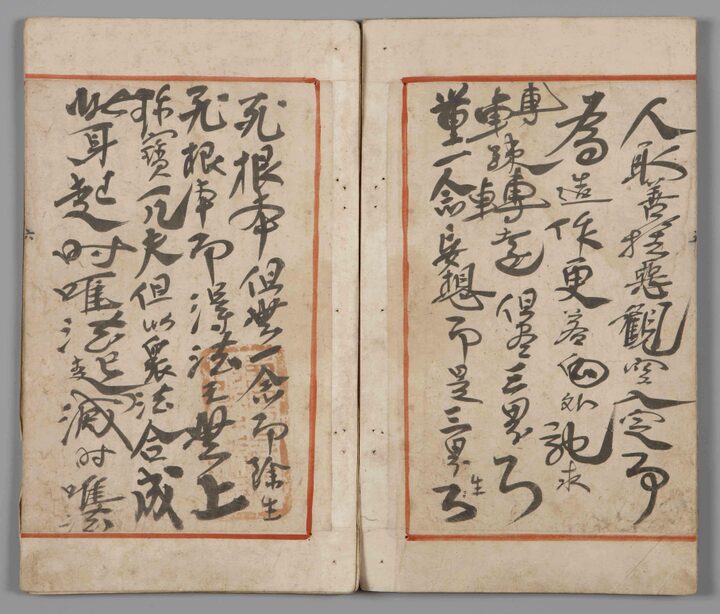 人取善捨惡觀空入定即
為造作更若向外馳求
轉疎轉遠但盡三界心
量一念妄想即是三界生心
死根本但無一念即除生
死根本即得法王無上
珎寶凡夫但以眾法合成
此身起時唯法起滅時唯法
六